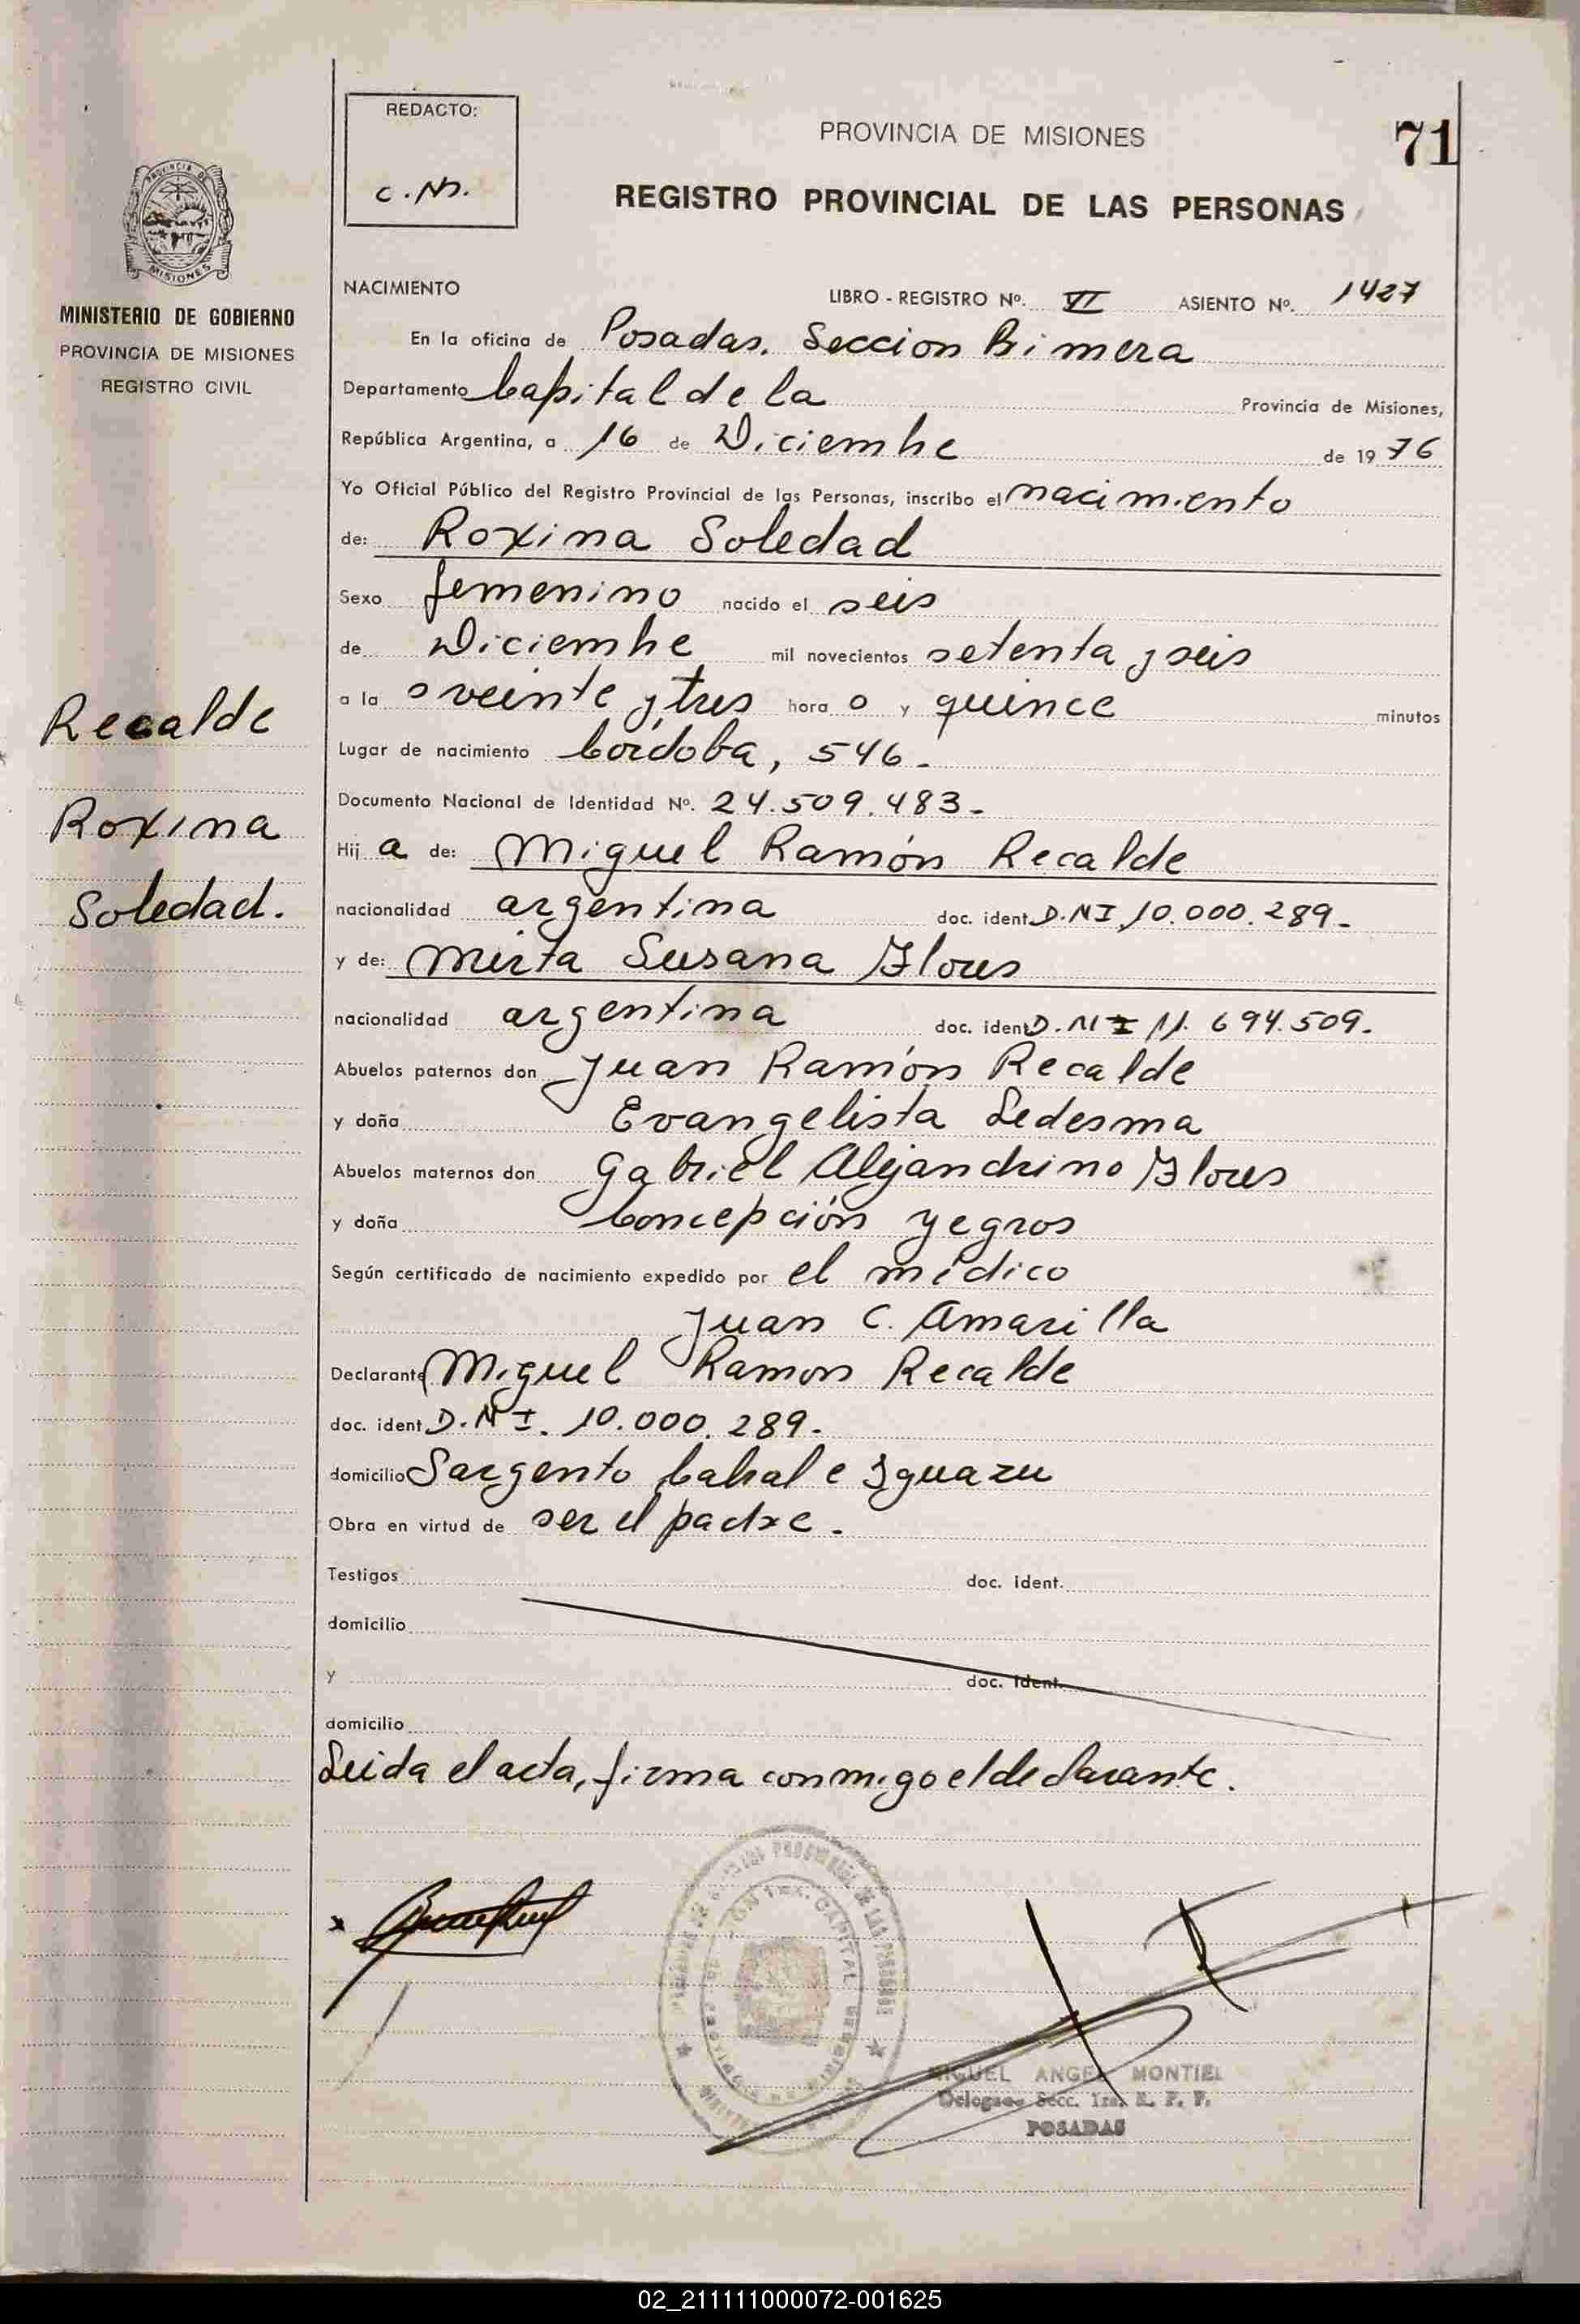 REDACTO:
C.M.
PROVINCIA DE MISIONES
71
REGISTRO PROVINCIAL DE LAS PERSONAS
PROVINCIA DE
MISIONES
MINISTERIO DE GOBIERNO
PROVINCIA DE MISIONES
REGISTRO CIVIL
NACIMIENTO
LIBRO - REGISTRO Nº. VI ASIENTO Nº. 1427
En la oficina de Posadas. Seccion Primera
Departamento Capital de la Provincia de Misiones,
República Argentina, a 16 de Diciembre de 19 76
Yo Oficial Público del Registro Provincial de las Personas, inscribo el nacimiento
de: Roxina Soledad
Sexo femenino nacido el seis
de Diciembre mil novecientos setenta y seis
a la s veinte y tres hora s y quince minutos
Recalde
Roxina
Soledad.
Lugar de nacimiento Córdoba, 546.
Documento Nacional de Identidad Nº. 24.509.483-
Hij a de: Miguel Ramón Recalde
nacionalidad argentina doc. ident. D.NI 10.000.289-
y de: Mirta Susana Flores
nacionalidad argentina doc. ident. D.NI 11.694.509.
Abuelos paternos don Juan Ramón Recalde
y doña Evangelista Ledesma
Abuelos maternos don Gabriel Alejandrino Flores
y doña Concepción yegros
Según certificado de nacimiento expedido por el médico
Juan C. Amarilla
Declarante Miguel Ramon Recalde
doc. ident. D.NI. 10.000.289.
domicilio Sargento Cabral e Iguazu
Obra en virtud de ser el padre.
Testigos doc. ident.
domicilio
y doc. ident.
domicilio
Leida el acta, firma conmigo el declarante.
MIGUEL ANGEL MONTIEL
Delegado Secc. 1ra. R. P. P.
POSADAS
02_211111000072-001625